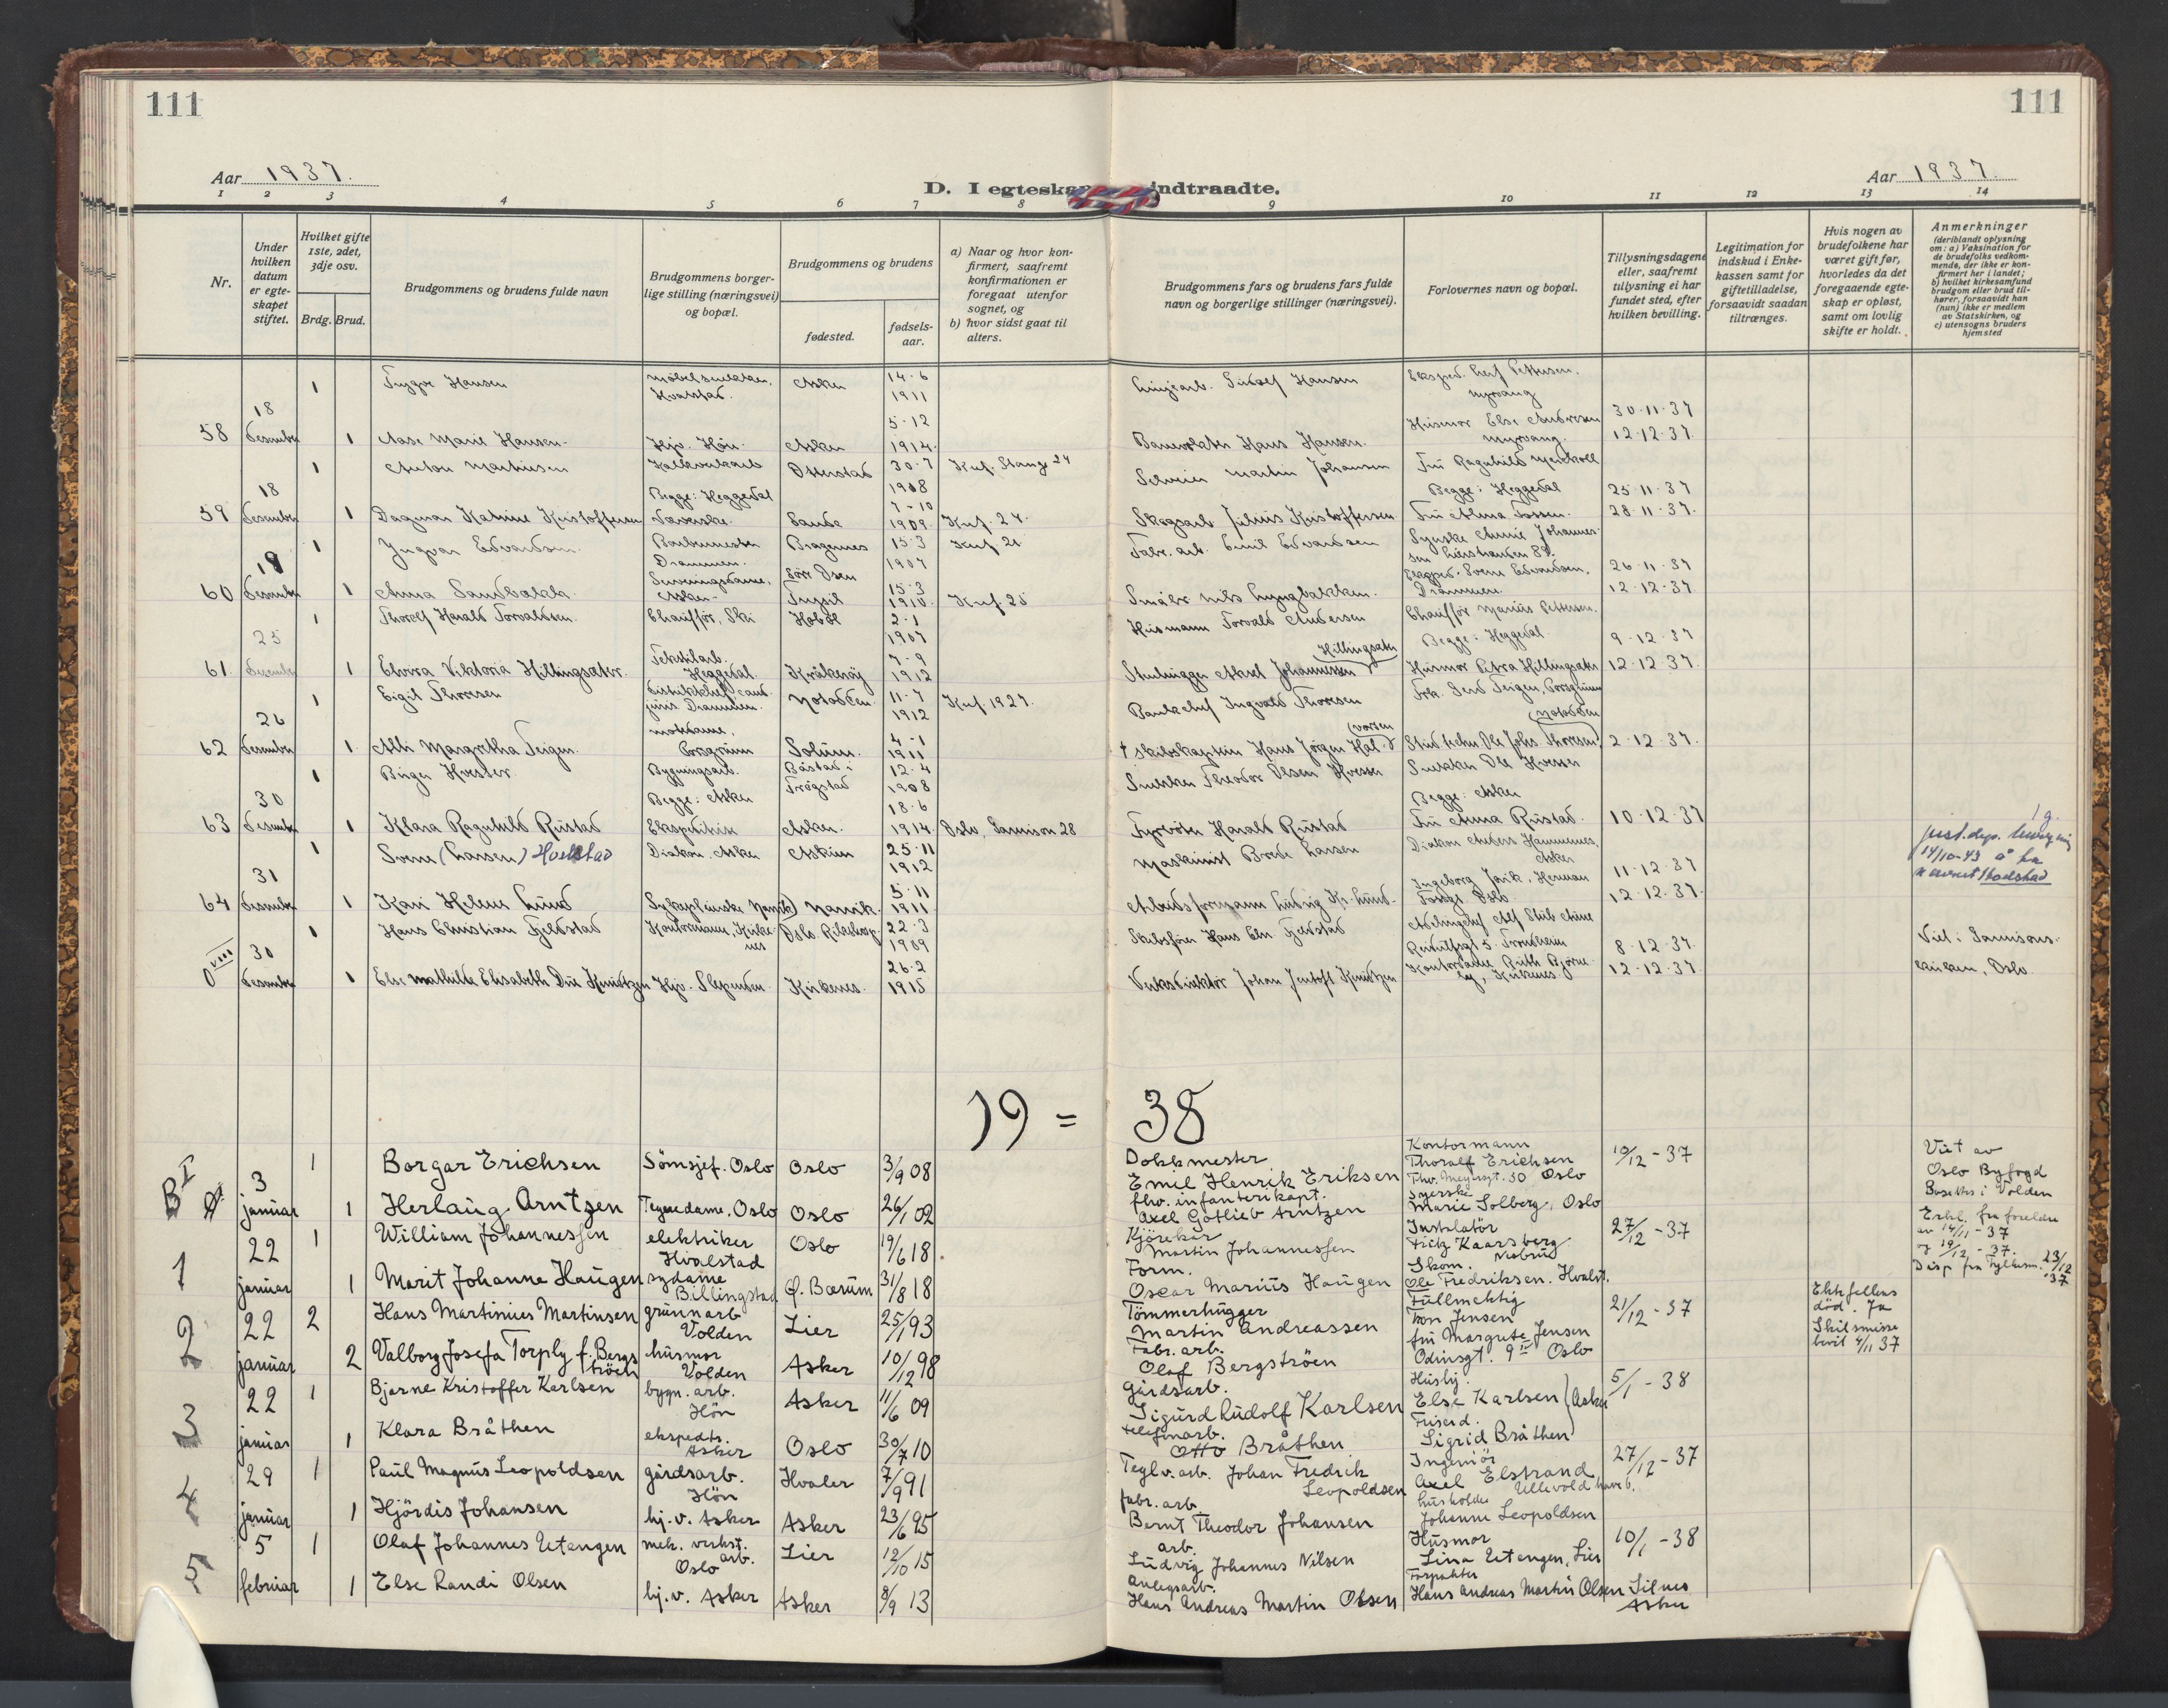 111
111
Aar 1937.
Aar 1937.
D. I egteska
indtraadte.
1 2 3 4 5 6 7 8 9 10 11 12 13 14
Nr.
Under hvilken datum er egteskapet stiftet.
Hvilket gifte 1ste, 2det, 3dje osv.
Brdg. Brud.
Brudgommens og brudens fulde navn
Brudgommens borgerlige stilling (næringsvei) og bopæl.
Brudgommens og brudens
fødested.
fødselsaar.
a) Naar og hvor konfirmert, saafremt konfirmationen er foregaat utenfor sognet, og
b) hvor sidst gaat til alters.
Brudgommens fars og brudens fars fulde navn og borgerlige stillinger (næringsvei).
Forlovernes navn og bopæl.
Tillysningsdagene eller, saafremt tillysning ei har fundet sted, efter hvilken bevilling.
Legitimation for indskud i Enkekassen samt for giftetilladelse, forsaavidt saadan tiltrænges.
Hvis nogen av brudefolkene har været gift før, hvorledes da det foregaaende egteskap er opløst, samt om lovlig skifte er holdt.
Anmerkninger
(deriblandt oplysning om: a) Vaksination for de brudefolks vedkommende, der ikke er konfirmert her i landet; b) hvilket kirkesamfund brudgom eller brud tilhører, forsaavidt han (hun) ikke er medlem av Statskirken, og c) utensogns bruders hjemsted
58 18 desember
1 Trygve Hansen Møbelsnekker. Hvalstad. Asker 14-6 1911 Linjearb. Hansen Eksped. Leif Pettersen. Myrvang 30-11-37
1 Aase Marie Hansen. Hjv. Høn. Asker 5-12 1914. Banevokter Hans Hansen. Husmor Else Andersen Myrvang. 12-12-37.
59 18 desember
1 Anton Martinsen Ottestad 30-7 1908 Knf. Stange 24 Martin Johansen Fru Ragnhild 25-11-37
Begge: Heggedal
1 Dagmar Katrine Kristoffersen Sande 7-10 1909. Knf. 24. Skogsarb. Julius Kristoffersen. Begge: Heggedal Fru Alma 28-11-37.
60 19 desember
1 Yngvar Edvardsen. Drammen. Bragernes 15-3 1907 Knf. 21 Fabr. arb. Emil Edvardsen 26-11-37
1 Anna Sandbakk. Serveringsdame, Asker. Trysil 15-3 1910. Knf 25 Eksped. Svein Edvardsen, Drammen. 12-12-37.
61 25 desember
1 Thorolf Harald Torvaldsen. Chauffør, Ski Hobøl 2-1 1907 Husmann Torvald Andersen Chauffør Marius Pettersen. Begge: Heggedal 9-12-37
1 Elvira Viktoria Hillingsæter. Tekstilarb. Heggedal. Kråkerøy 7-9 1912 Stenhugger Aksel Johannessen Hillingsæter Husmor Petra Hillingsæter 12-12-37.
62 26 desember
1 Eigil Thoresen Drammen. Notodden 11-7 1912 Knf. 1927. Bankchef Ingvald Thoresen Frk. Gerd Teigen, Porsgrunn
1. Alli Margretha Teigen. Motedame, Porsgrunn Solum. 4-1 1911 † Skibskaptein Hans Jørgen Halvorsen Ole Johs. Thoresen, Notodden 2-12-37.
63 30 desember
1 Birger Hvester Bygningsarb. Båstad i Trøgstad 12-4 1908 Snekker Theodor Olsen Hvester Snekker Ole Hvester
Begge: Asker
1 Klara Ragnhild Rustad Ekspeditrise Asker. 18-6 1914. Oslo, Garnison 28 Fyrbøter Harald Rustad Begge: Asker Fru Anna Rustad. 10-12-37
64 31 desember
1 Svein (Larsen) Hoelstad Diakon, Asker Askim 25-11 1912 Maskinist Larsen Diakon Anders Hammernes, Asker 11-12-37
just. dep. 14/10-43 å ta navnet Hoelstad
1 Kari Helene Lund Sykepleierske Narvik Narvik. 5-11 1911. Arbeidsformann Ludvig Kr. Lund. Oslo. 12-12-37.
0 VIII 30 desember
1 Hans Christian Fjeldstad Kontormann, Kirkenes Oslo. 22-3 1909 Skibsfører Hans Chr. Fjeldstad Trondheim 8-12-37. Viet i Garnisonskirken, Oslo.
1 Else Mathilde Elisabeth Due Knudtzen Hjv. Slependen. Kirkenes. 26-2 1915 Verksdirektør Johan Jentoft Knudtzen Kontordame Ruth Kirkenes. 12-12-37.
19 = 38
B I 3 januar
1 Borgar Erichsen Sömsjef. Oslo Oslo 3/9 08 Dokkmester Emil Henrik Eriksen Kontormann Thoralf Erichsen Thv. Meyersgt. 30 Oslo 19/12-37 Viet av Oslo Byfogd Bosettes i Volden
1 Herlaug Arntzen Tegnedame. Oslo Oslo 26/1 02 fhv. infanterikapt. Axel Gotlieb Arntzen Syerske Marie Solberg, Oslo
1 22 januar
1 William Johannessen elektriker Hvalstad Oslo 19/6 18 Kjörekar Martin Johannessen Instalatör Fritz Kaarsberg Nesbru 27/12-37 Erkl. fra foreldre av 14/11-37 og 19/12-37. Disp. fra Fylkesm. 23/12 37
1 Marit Johanne Haugen sydame Billingstad Ø. Bærum 31/8 18 Form. Oscar Marius Haugen Skom. Ole Fredriksen. Hvalst.
2 22 januar
2 Hans Martinius Martinsen grunnarb Volden Lier 25/1 93 Tömmerhugger Martin Andreassen Fullmektig Tron Jensen 21/12-37 Ektefellens död. Ja Skilsmisse bevil 4/11 37
2 Valborg Josefa Torply f. Bergströen husmor Volden Asker 10/12 98 Fabr. arb. Olaf Bergströen fru Margrete Jensen Odinsgt. 9 Oslo
3 22 januar
1 Bjarne Kristoffer Karlsen bygn. arb. Hön Asker 11/6 09 gårdsarb. Sigurd Rudolf Karlsen Husbj. Else Karlsen Asker 5/1-38
1 Klara Bråthen ekspedtr. Asker Oslo 30/7 10 telefonarb. Otto Bråthen Friserd. Sigrid Bråthen
4 29 januar
1 Paul Magnus Leopoldsen gårdsarb. Hön Hvaler 7/9 91 Teglv. arb. Johan Fredrik Leopoldsen Ingeniör Axel Elstrand Ullevold haveb. 27/12-37
1 Hjördis Johansen hj. v. Asker Asker 23/6 95 fabr. arb. Bernt Theodor Johansen husholder Johanne Leopoldsen
5 5 februar
1 Olaf Johannes Utengen mek. verkst. arb. Oslo Lier 12/10 15 arb. Ludvig Johannes Nilsen Husmor Lina Utengen, Lier 10/1-38
1 Else Randi Olsen hj. v. Asker Asker 8/9 13 Anlegsarb. Hans Andreas Martin Olsen Forpakter Hans Andreas Martin Olsen Asker